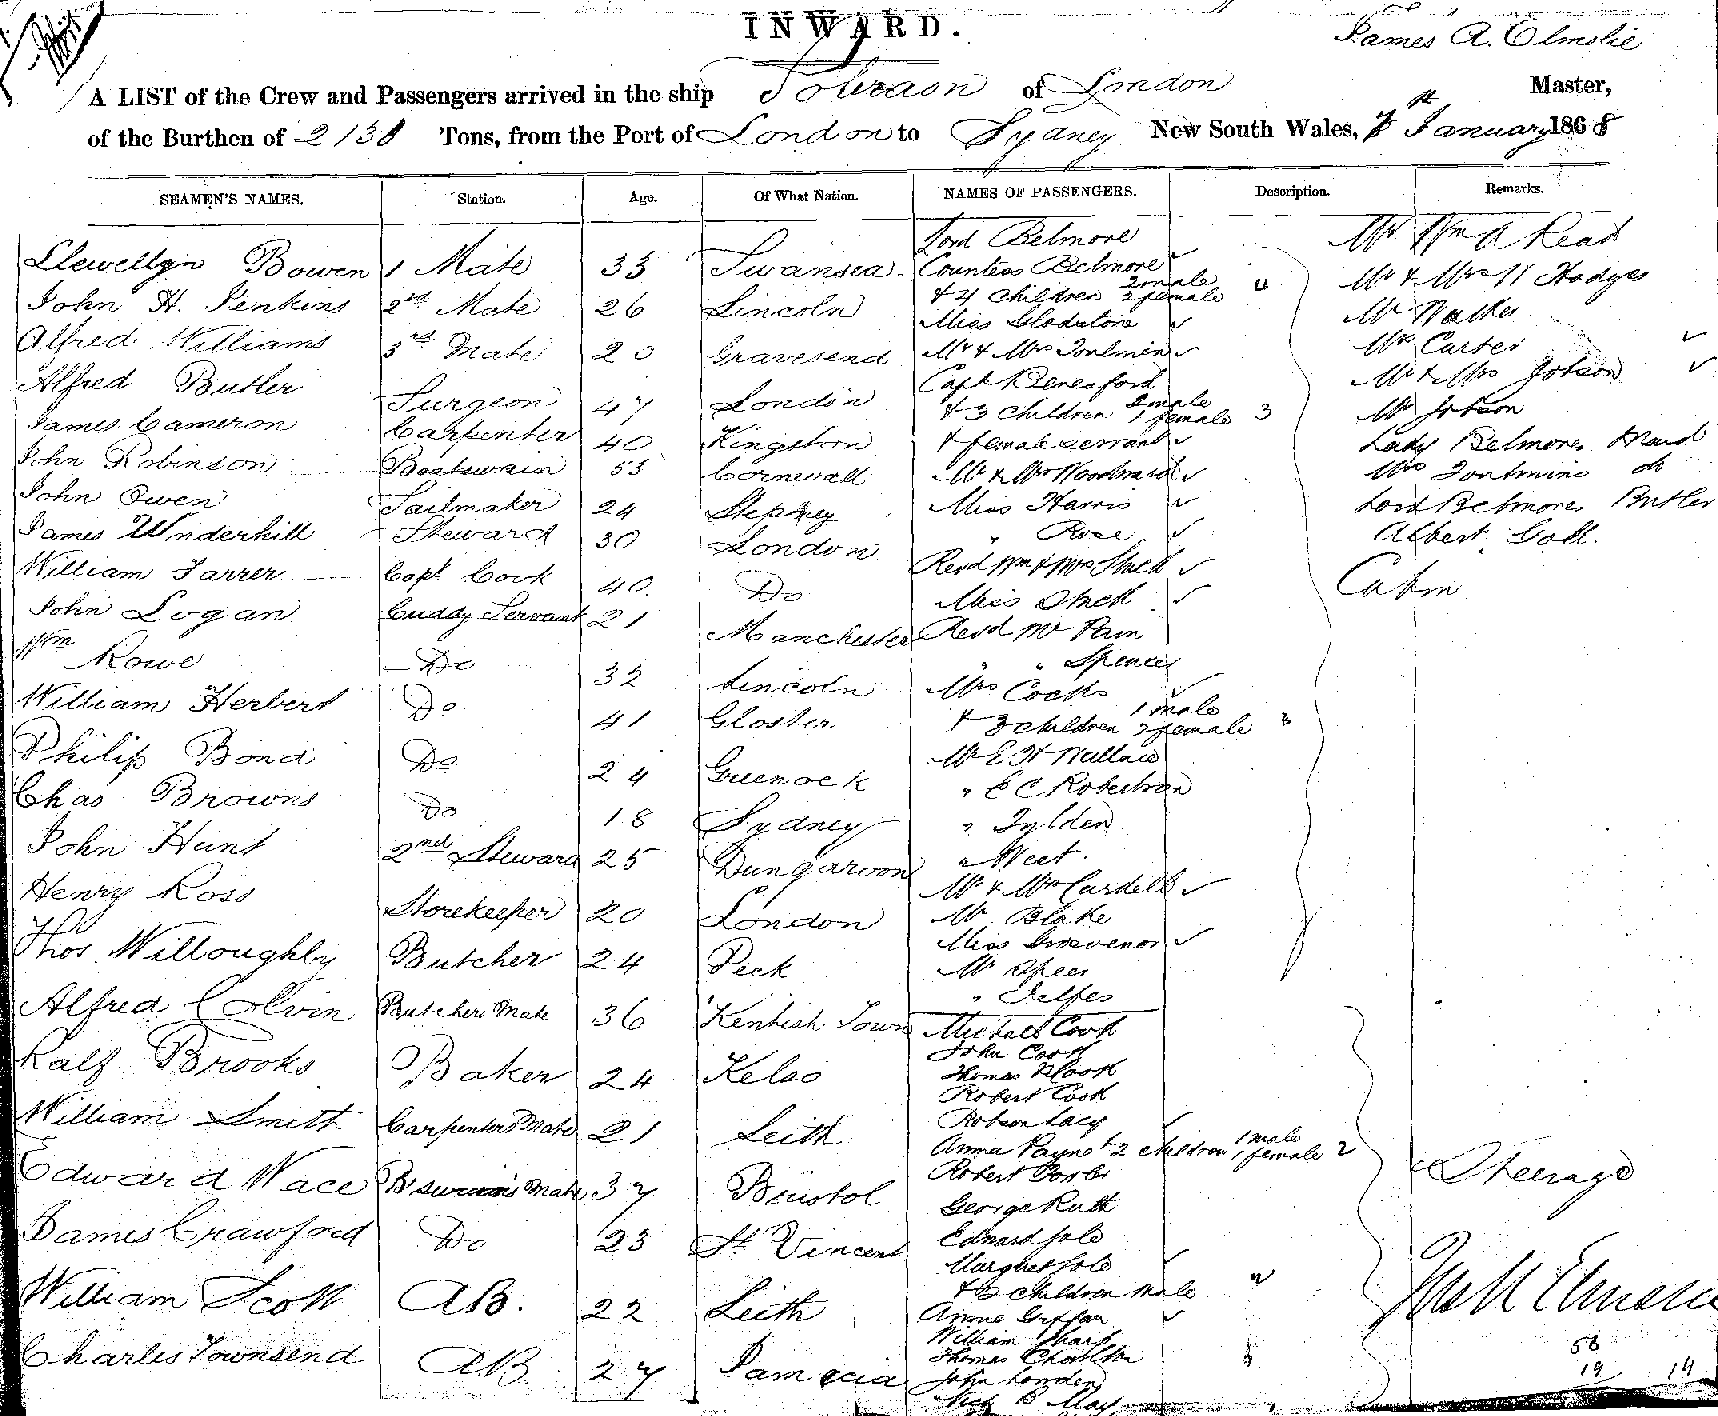 INWARD.
James A. Elmslie
A LIST of the Crew and Passengers arrived in the ship Sobraon of London Master,
of the Burthen of 2138 Tons, from the Port of London to Sydney New South Wales, January 1868
SEAMEN'S NAMES. Station. Age. Of What Nation. NAMES OF PASSENGERS. Description. Remarks.
Llewellyn Bowen 1 Mate 33 Swansea
John H. Jenkins 2nd Mate 26 Lincoln
Alfred Williams 3rd Mate 20 Gravesend
Alfred Butler Surgeon 47 London
James Cameron Carpenter 40 Kingston
John Robinson Boatswain 53 Cornwall
John Owen Sailmaker 24 Stepney
James Underhill Steward 30 London
William Farrer Capt Cook 40 Do
John Logan Cuddy Servant 21 Manchester
Wm Rowe Do 32 Lincoln
William Herbert Do 41 Gloster
Philip Bond Do 24 Greenock
Chas Browns Do 18 Sydney
John Hunt 2nd Steward 25 Dungarvon
Henry Ross Storekeeper 20 London
Thos Willoughby Butcher 24 Peck
Alfred Colvin Butchers Mate 36 Kentish Town
Ralf Brooks Baker 24 Kelso
William Smith Carpenters Mate 21 Leith
Edward Wace Bswain's Mate 37 Bristol
James Crawford Do 23 St Vincent
William Scott AB. 22 Leith
Charles Townsend AB 27
Lord Belmore
Countess Belmore
& 4 children 2 male 2 female 4
Miss Gladstone
Mr & Mrs Toulmin
Capt Beresford
& 3 children 2 male 1 female 3
& female servant
Mr & Mrs Woodward
Miss Harris
" Rose
Revd Wm & Mrs Stack
Miss Stack
Revd Mr Pain
" " Spencer
Mrs Cocks
& 3 children 1 male 2 female 3
Mr E H Wallace
" E C Robertson
" Tylden
" West.
Mr & Mrs Cardell
Mr Blake
Miss Grosvenor
Mr Speer
" Delfes
Michael Cook
John Cook
Thomas Cook
Robert Cook
Robson Lacy
Annie Payne & 2 children 1 male 1 female 2
Robert Forbs
George Rutt
Edward Sole
Margaret Sole
& children male
Annie
William Sharp
Thomas
John Lowden
May
Mr Wm A Read
Mr & Mrs Hodges
Mr Walker
Mr Carter
Mr & Mrs Jobson
Mr Jobson
Lady Belmores Maid
Mrs Toulmins do
Lord Belmores Butler
Albert Gott.
Cabin
Steerage
58
19 19